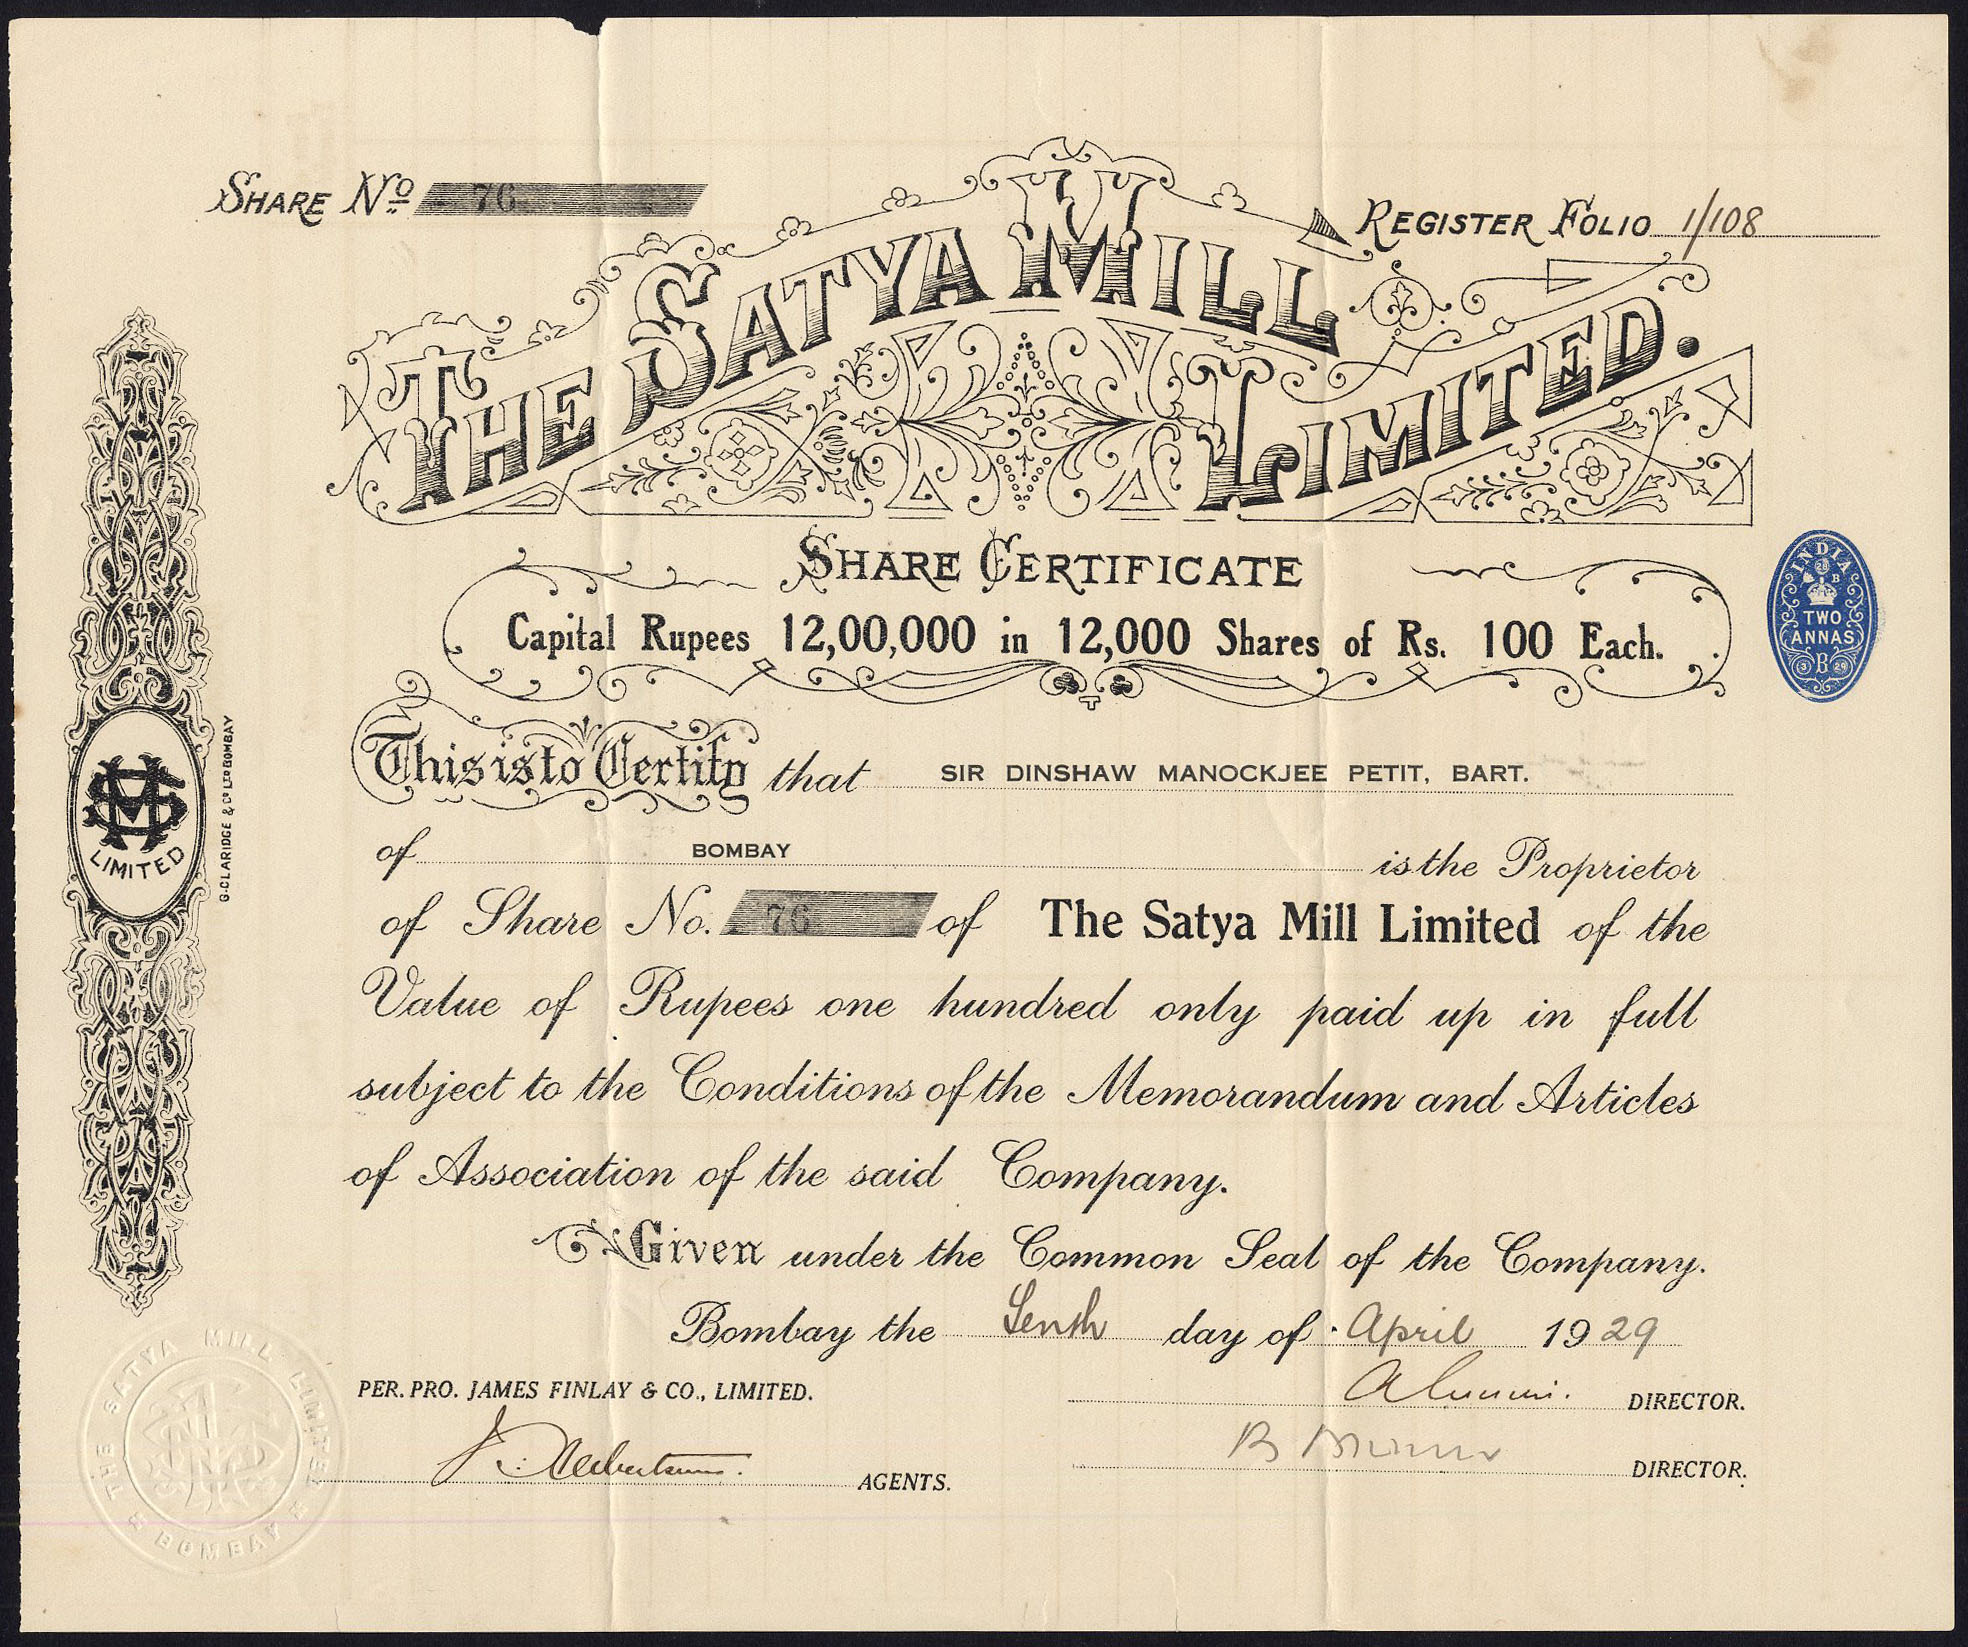 SHARE No 76
REGISTER FOLIO 1/108
THE SATYA MILL LIMITED.
SHARE CERTIFICATE
Capital Rupees 12,00,000 in 12,000 Shares of Rs. 100 Each.
INDIA
28
B
TWO
ANNAS
3 B 29
This is to Certify that SIR DINSHAW MANOCKJEE PETIT, BART.
of BOMBAY is the Proprietor
of Share No. 76 of The Satya Mill Limited of the
Value of Rupees one hundred only paid up in full
subject to the Conditions of the Memorandum and Articles
of Association of the said Company.
Given under the Common Seal of the Company.
Bombay the Tenth day of April 1929
PER. PRO. JAMES FINLAY & CO., LIMITED.
DIRECTOR.
AGENTS.
DIRECTOR.
LIMITED
G. CLARIDGE & CO LTD BOMBAY
THE SATYA MILL LIMITED
BOMBAY